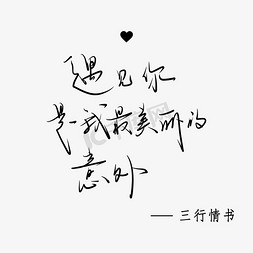 遇见你
是我最美丽的
意外
——三行情书